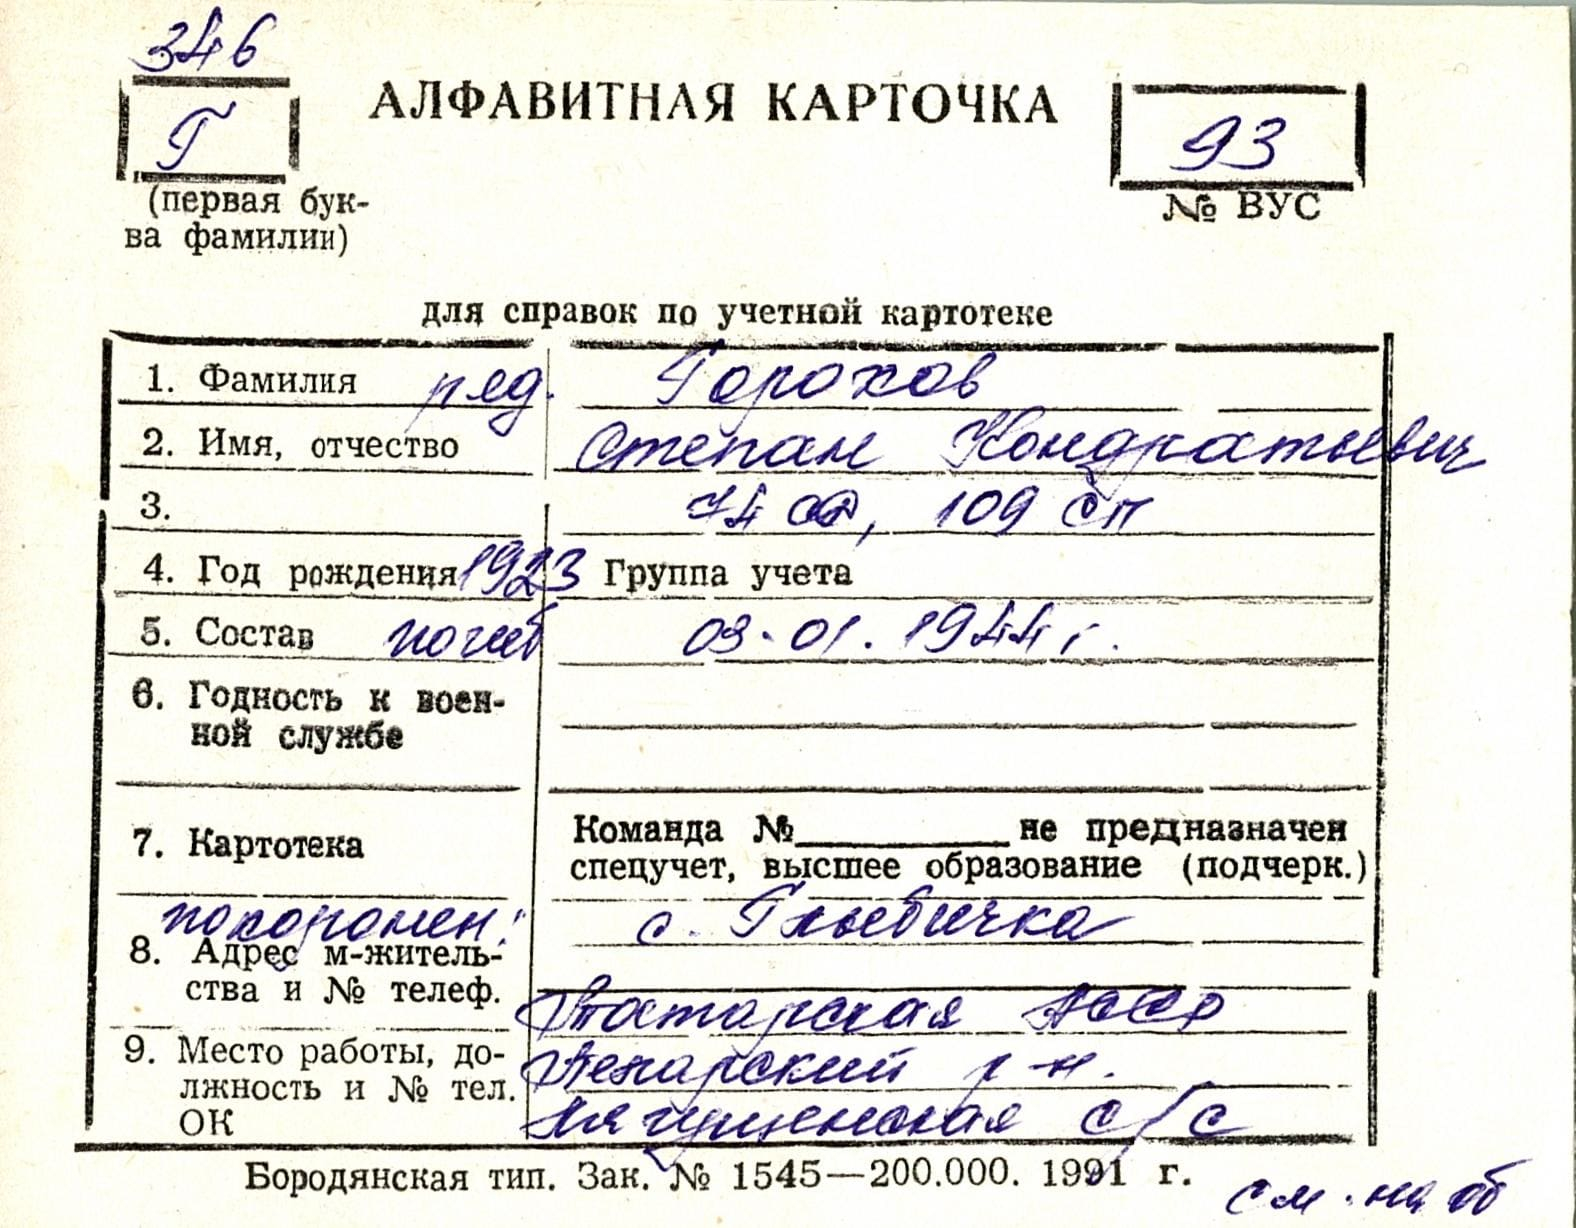 346
Г
АЛФАВИТНАЯ КАРТОЧКА
93
(первая бук-
ва фамилии)
№ ВУС
для справок по учетной картотеке
1. Фамилия ряд. Горохов
2. Имя, отчество Степан Кондратьевич
3. 74 сд, 109 сп
4. Год рождения 1923 Группа учета
5. Состав погиб 03.01.1944 г.
6. Годность к воен-
ной службе
7. Картотека
Команда № не предназначен
спецучет, высшее образование (подчерк.)
похоронен: с. Глыбичка
8. Адрес м-житель-
ства и № телеф.
Татарская АССР
9. Место работы, до-
лжность и № тел.
ОК
р-н.
с/с
Бородянская тип. Зак. № 1545—200.000. 1991 г.
см. на об